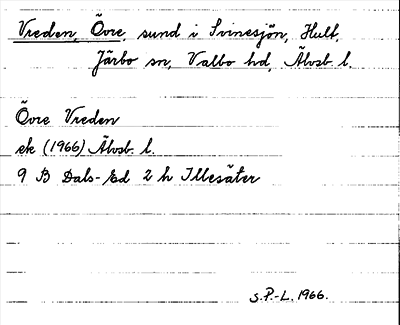 Vreden, Övre, sund i Svinesjön, Hult,
Järbo sn, Valbo hd, Älvsb. l.
Övre Vreden
ek (1966) Älvsb. l.
9 B Dals-Ed 2 h Illesäter
S.P.-L. 1966.